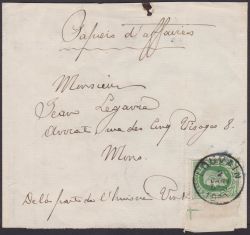 Papiers d'affaires
Monsieur
Jean Legavre
Avocat rue des Cinq Visages 8.
Mons.
De la part de l'huissier